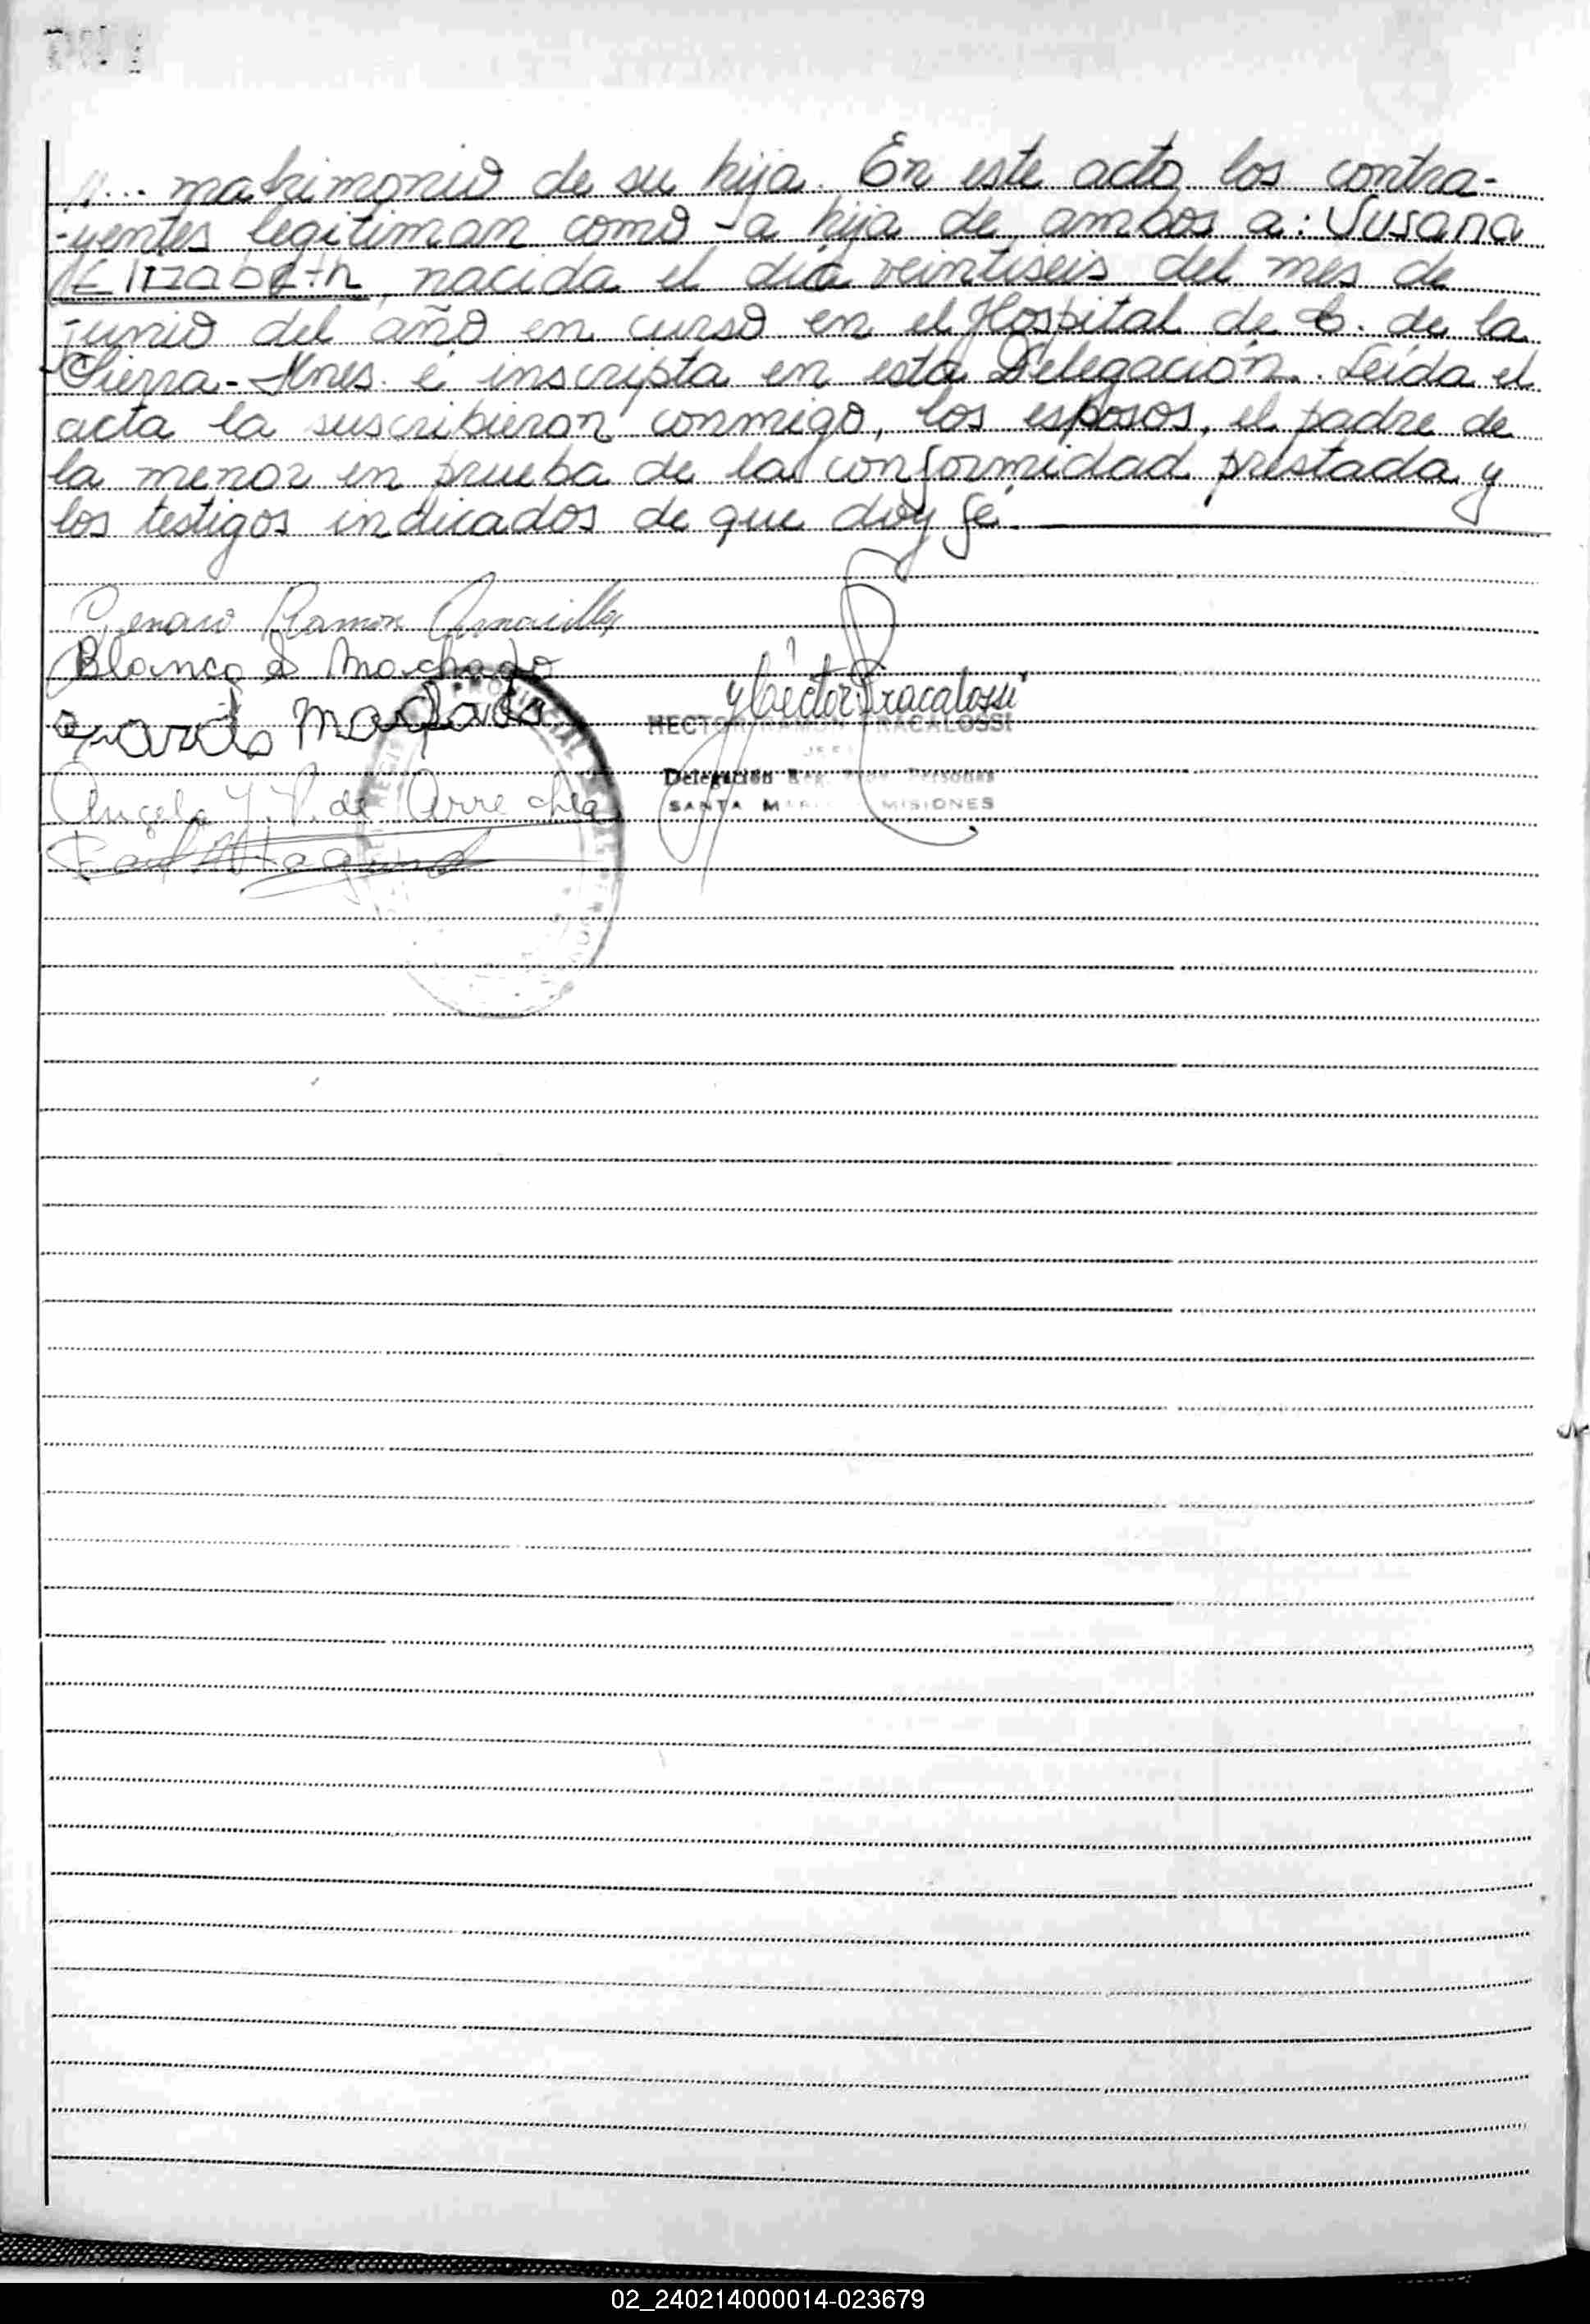 //... matrimonio de su hija. En este acto los contra-
-yentes legitiman como a hija de ambos a: Susana
Elizabeth, nacida el día veintiseis del mes de
junio del año en curso en el Hospital de C. de la
Sierra - Mnes. é inscripta en esta Delegación. Leída el
acta la suscribieron conmigo, los esposos, el padre de
la menor en prueba de la conformidad prestada y
los testigos indicados de que doy fé.
Genaro Ramon
Blanca S Machado
Machado
Angela Y. V. de Arrechea
Héctor Fracalossi
HECTOR RAMON FRACALOSSI
JEFE
Delegación Reg. Prov. Personas
SANTA MARIA MISIONES
02_240214000014-023679